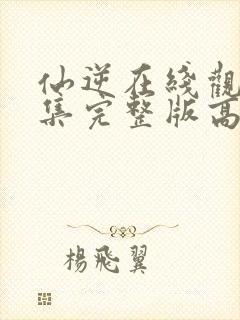 仙逆在綫觀
集完整版高
楊飛翼